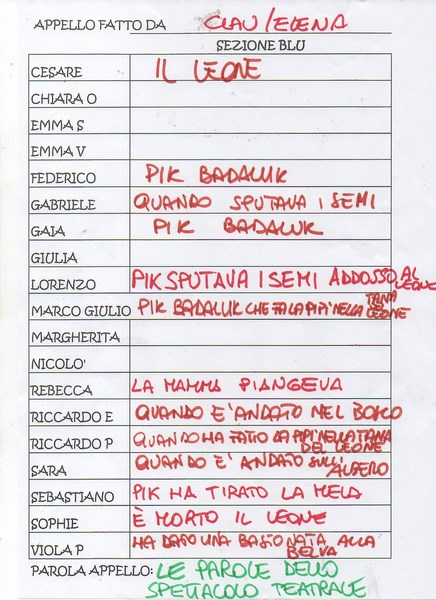 APPELLO FATTO DA CLAU/ELENA
SEZIONE BLU
CESARE IL LEONE
CHIARA O
EMMA S
EMMA V
FEDERICO PIK BADALUK
GABRIELE QUANDO SPUTAVA I SEMI
GAIA PIK BADALUK
GIULIA
LORENZO PIK SPUTAVA I SEMI ADDOSSO AL LEONE
MARCO GIULIO PIK BADALUK CHE FA LA PIPI' NELLA TANA LEONE
MARGHERITA
NICOLO'
REBECCA LA MAMMA PIANGEVA
RICCARDO E QUANDO E' ANDATO NEL BOSCO
RICCARDO P QUANDO HA FATTO LA PIPI' NELLA TANA
DEL LEONE
SARA QUANDO E' ANDATO SULL'
ALBERO
SEBASTIANO PIK HA TIRATO LA MELA
SOPHIE È MORTO IL LEONE
VIOLA P HA DATO UNA BASTONATA ALLA
BELVA
PAROLA APPELLO: LE PAROLE DELLO
SPETTACOLO TEATRALE